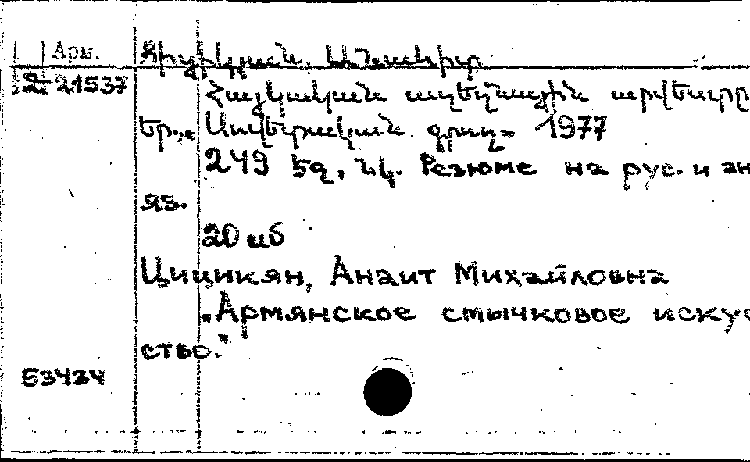 Арм.
Ծիցիկյան Անահիտ
21537 Հայկական աղեղնային արվեստը
Եր., Սովետական գրող, 1977
249 էջ, նկ. Резюме на рус. и ан
яз.
20 иб
Цицикян, Анаит Михайловна
„Армянское смычковое искус
ство."
53424